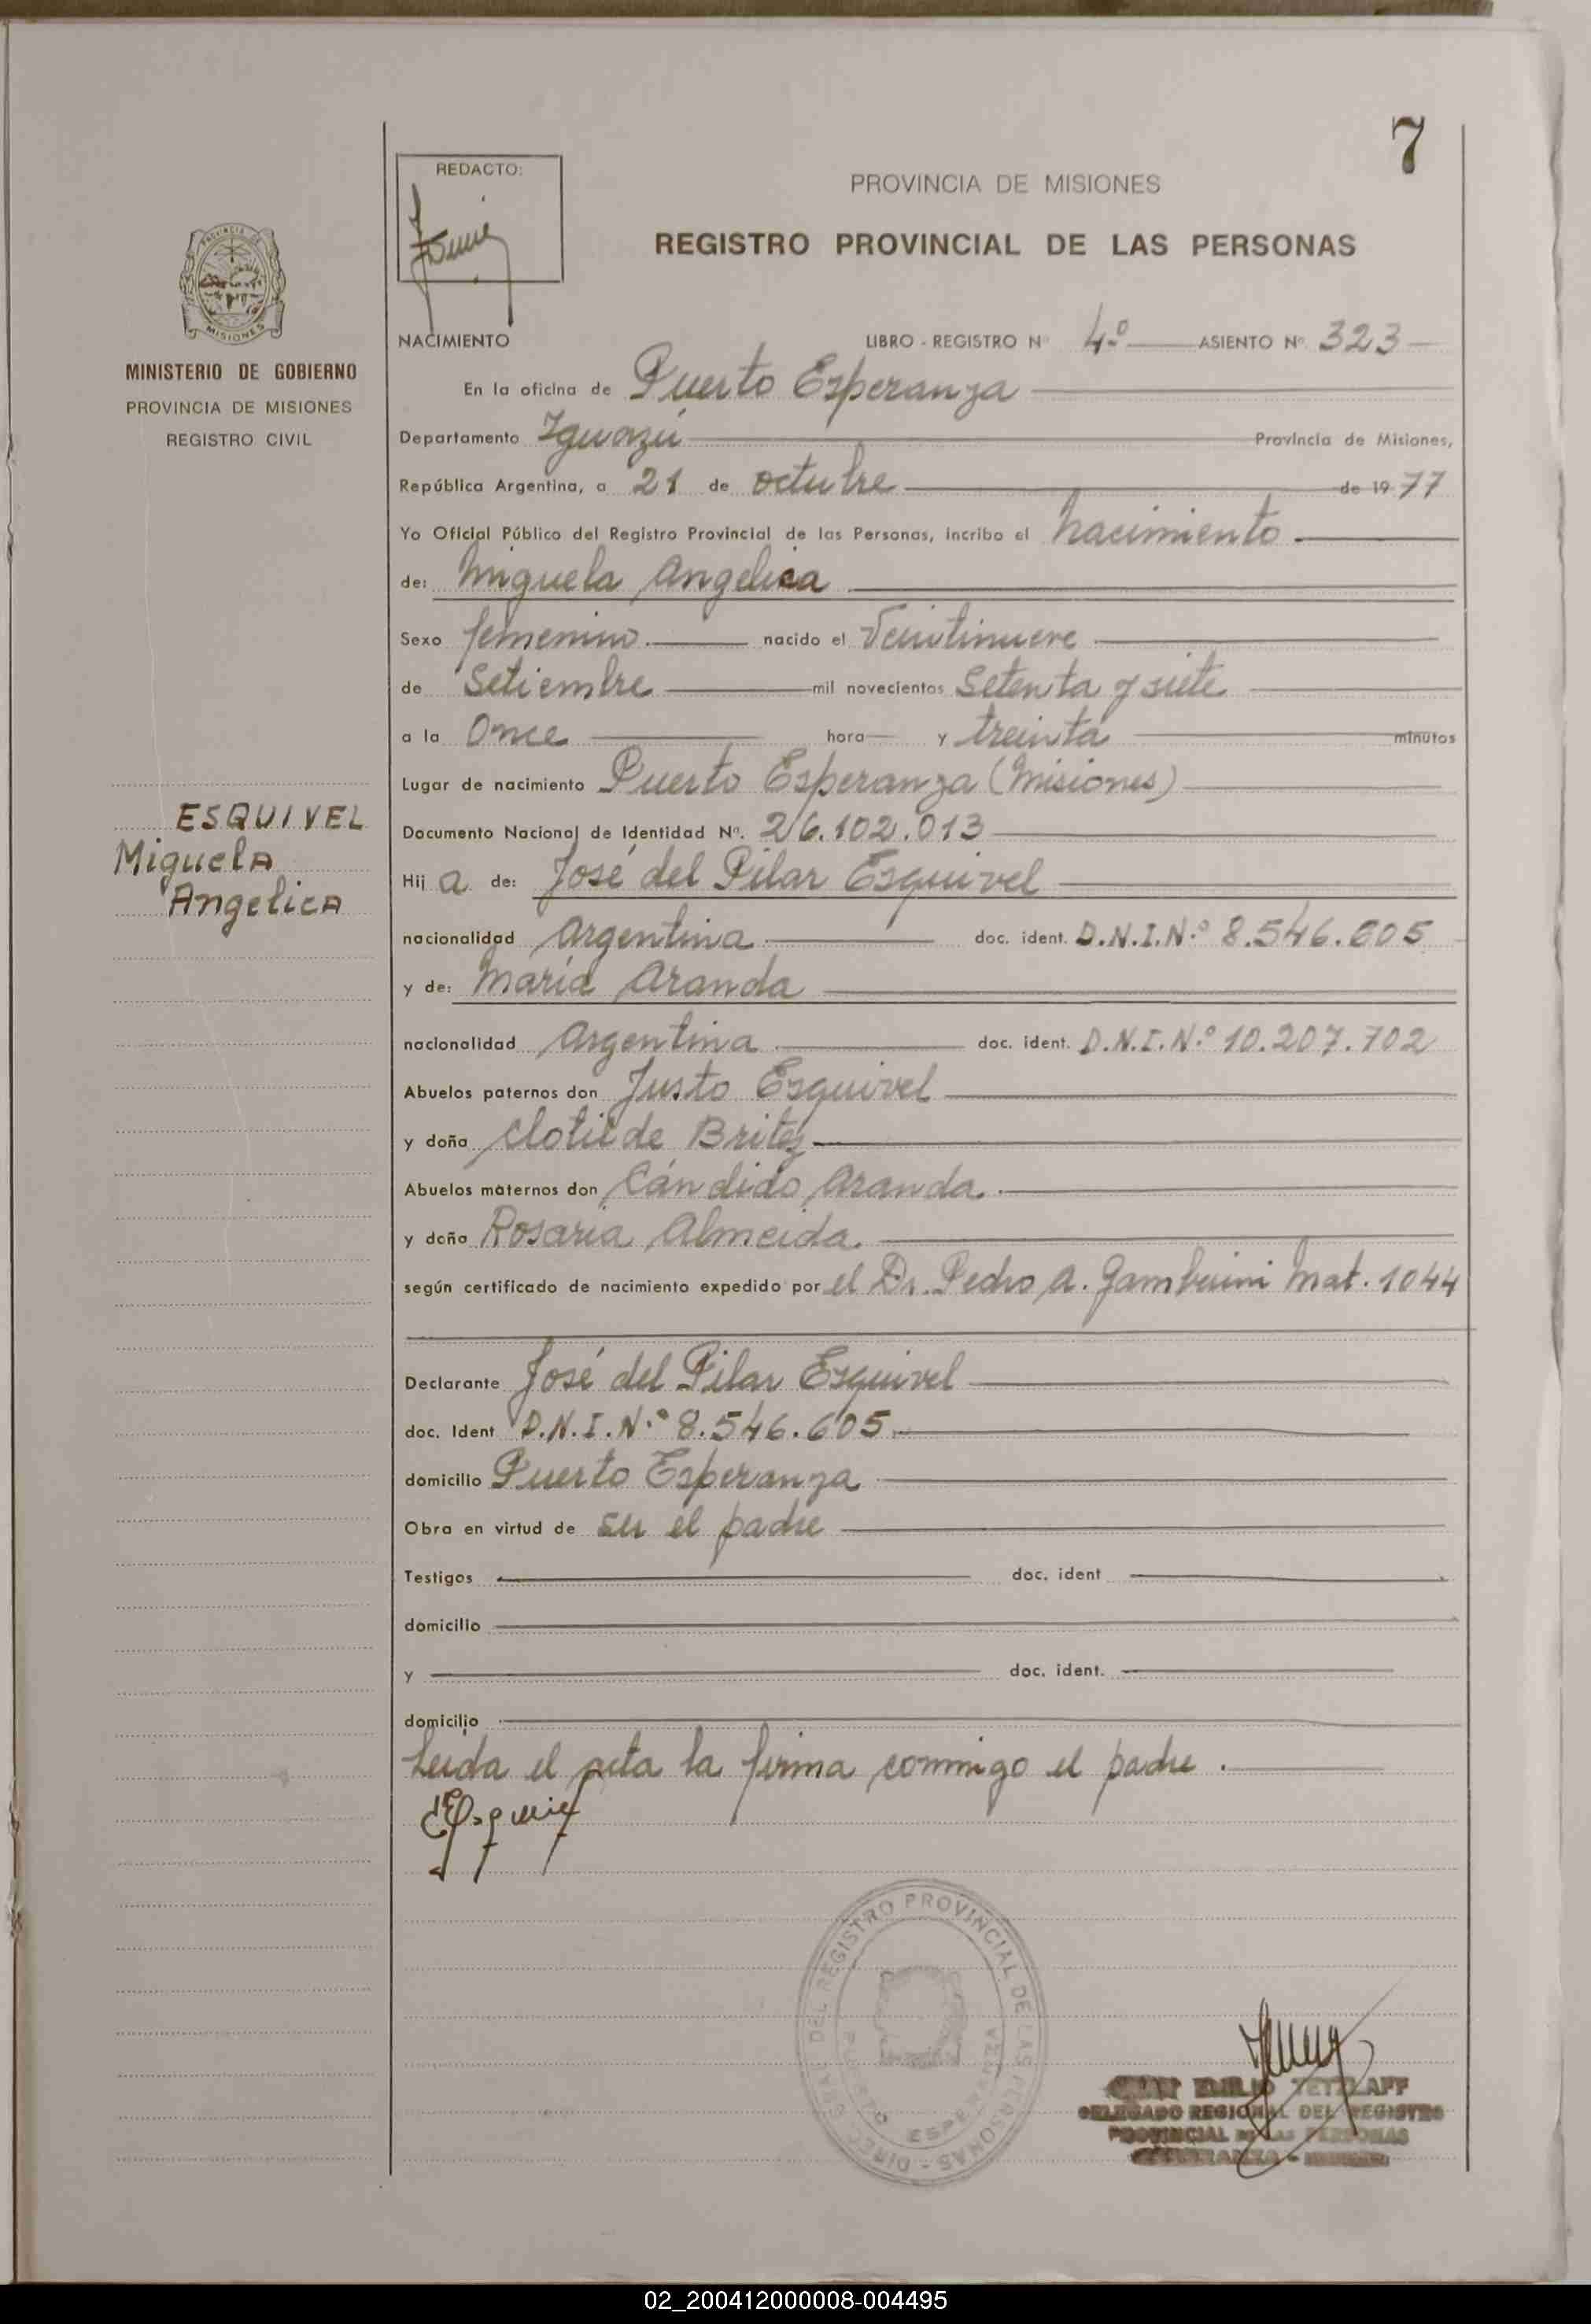 7
REDACTO:
PROVINCIA DE MISIONES
REGISTRO PROVINCIAL DE LAS PERSONAS
PROVINCIA DE
MISIONES
MINISTERIO DE GOBIERNO
PROVINCIA DE MISIONES
REGISTRO CIVIL
NACIMIENTO LIBRO - REGISTRO Nº 4º ASIENTO Nº 323
En la oficina de Puerto Esperanza
Departamento Iguazú Provincia de Misiones,
República Argentina, a 21 de octubre de 1977
Yo Oficial Público del Registro Provincial de las Personas, incribo el nacimiento
de: Miguela Angelica
Sexo femenino. nacido el Veintinueve
de Setiembre mil novecientos Setenta y siete
a la Once hora y treinta minutos
Lugar de nacimiento Puerto Esperanza (Misiones)
Documento Nacional de Identidad Nº. 26.102.013
ESQUIVEL
Miguela
Angelica
Hij a de: José del Pilar Esquivel
nacionalidad Argentina doc. ident. D.N.I.N.º 8.546.605
y de: María Aranda
nacionalidad Argentina doc. ident. D.N.I.N.º 10.207.702
Abuelos paternos don Justo Esquivel
y doña Clotilde Britez
Abuelos maternos don Cándido Aranda.
y doña Rosaria Almeida.
según certificado de nacimiento expedido por el Dr. Pedro A. Gamberini Mat. 1044
Declarante José del Pilar Esquivel
doc. Ident D.N.I.N.º 8.546.605.
domicilio Puerto Esperanza
Obra en virtud de ser el padre
Testigos doc. ident
domicilio
y doc. ident.
domicilio
Leida el acta la firma conmigo el padre.
DIREC. GRAL. DEL REGISTRO PROVINCIAL DE LAS PERSONAS
PUERTO ESPERANZA
EMILIO TETZLAFF
DELEGADO REGIONAL DEL REGISTRO
PROVINCIAL DE LAS PERSONAS
ESPERANZA - MISIONES
02_200412000008-004495